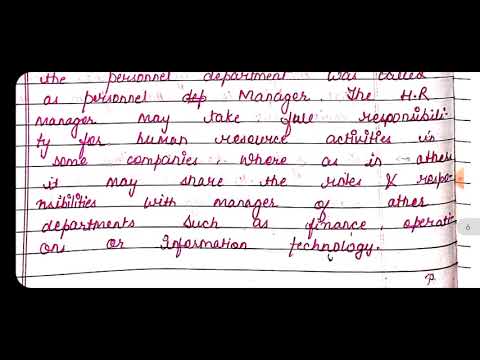 the personnel department was called
as personnel dep Manager. The H.R
manager may take full responsibili-
ty for human resource activities in
some companies. Where as in others
it may share the roles & respo-
nsibilities with manager of other
departments such as finance, operati
ons or Information technology.
6